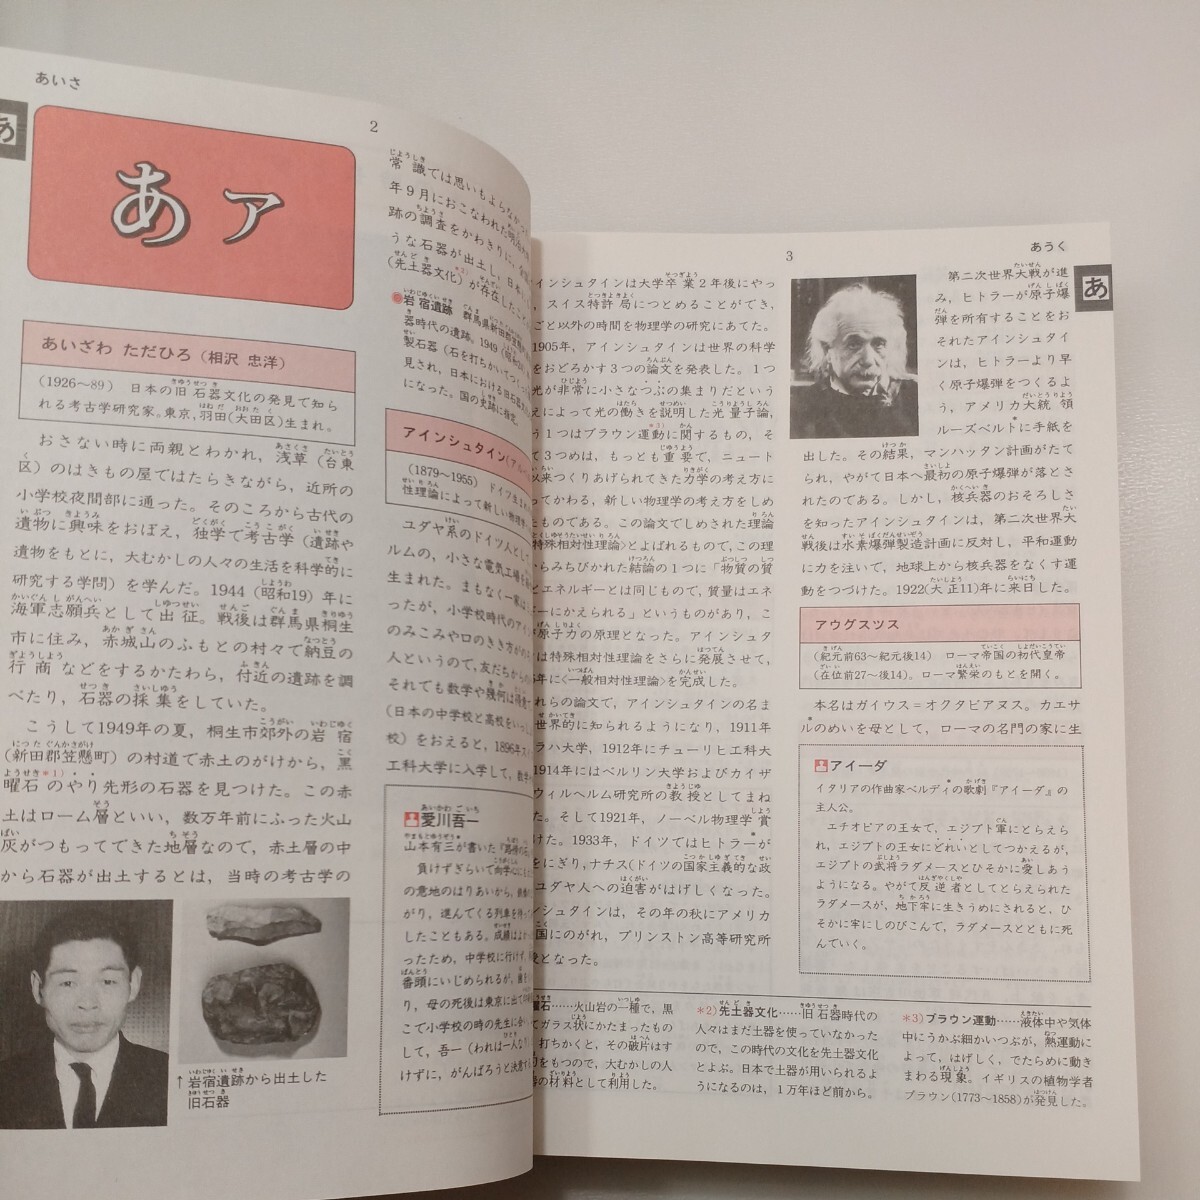 あいさ
2
あ
あ ア
あいざわ ただひろ（相沢 忠洋）
（1926〜89） 日本の旧石器文化の発見で知ら
れる考古学研究家。東京，羽田（大田区）生まれ。
おさない時に両親とわかれ，浅草（台東
区）のはきもの屋ではたらきながら，近所の
小学校夜間部に通った。そのころから古代の
遺物に興味をおぼえ，独学で考古学（遺跡や
遺物をもとに，大むかしの人々の生活を科学的に
研究する学問）を学んだ。1944（昭和19）年に
海軍志願兵として出征。戦後は群馬県桐生
市に住み，赤城山のふもとの村々で納豆の
行商などをするかたわら，付近の遺跡を調
べたり，石器の採集をしていた。
こうして1949年の夏，桐生市郊外の岩宿
（新田郡笠懸町）の村道で赤土のがけから，黒
曜石*1)のやり先形の石器を見つけた。この赤
土はローム層といい，数万年前にふった火山
灰がつもってできた地層なので，赤土層の中
から石器が出土するとは，当時の考古学の
↑岩宿遺跡から出土した
旧石器
常識では思いもよらなかっ
年9月におこなわれた明治大
跡の調査をかわきりに，全
うな石器が出土し，日本に
（先土器文化）*2)が存在したこ
●岩宿遺跡 群馬県新田郡笠懸
器時代の遺跡。1949（昭和
製石器（石を打ちかいてつく
見され，日本における旧石器
になった。国の史跡に指定。
アインシュタイン（アル
（1879〜1955） ドイツ生まれ
性理論によって新しい物理学
ユダヤ系のドイツ人として
ルムの，小さな電気工場を
生まれた。まもなく一家は
ったが，小学校時代のアイン
のみこみや口のきき方が
人というので，友だちから
それでも数学や幾何は得意で
（日本の中学校と高校をいっ
校）をおえると，1896年ス
工科大学に入学して，数学
愛川吾一
山本有三が書いた『路傍の石
負けずぎらいで向学心に
の意地のはりあいから，鉄橋
がり，進んでくる列車を待っ
したこともある。成績はよか
ったため，中学校に行けず，
番頭にいじめられるが，歯を
り，母の死後は東京に出て
こで小学校の時の先生に会
して，吾一（われは一人なり
けずに，がんばろうと決意する
3
あうく
あ
インシュタインは大学卒業2年後にやっ
，スイス特許局につとめることができ，
ごと以外の時間を物理学の研究にあてた。
1905年，アインシュタインは世界の科学
をおどろかす3つの論文を発表した。1つ
光が非常に小さなつぶの集まりだという
えによって光の働きを説明した光量子論，
う1つはブラウン運動*3)に関するもの，そ
て3つめは，もっとも重要で，ニュート
以来つくりあげられてきた力学の考え方に
ってかわる，新しい物理学の考え方をしめ
たものである。この論文でしめされた理論
特殊相対性理論〉とよばれるもので，この理
からみちびかれた結論の1つに「物質の質
とエネルギーとは同じもので，質量はエネ
ギーにかえられる」というものがあり，こ
が原子力の原理となった。アインシュタ
は特殊相対性理論をさらに発展させて，
5年に〈一般相対性理論〉を完成した。
れらの論文で，アインシュタインの名ま
世界的に知られるようになり，1911年
ラハ大学，1912年にチューリヒ工科大
1914年にはベルリン大学およびカイザ
ウィルヘルム研究所の教授としてまね
た。そして1921年，ノーベル物理学賞
けた。1933年，ドイツではヒトラーが
をにぎり，ナチス（ドイツの国家主義的な政
ユダヤ人への迫害がはげしくなった。
ンシュタインは，その年の秋にアメリカ
国にのがれ，プリンストン高等研究所
となった。
第二次世界大戦が進
み，ヒトラーが原子爆
弾を所有することをお
それたアインシュタイ
ンは，ヒトラーより早
く原子爆弾をつくるよ
う，アメリカ大統領
ルーズベルトに手紙を
出した。その結果，マンハッタン計画がたて
られ，やがて日本へ最初の原子爆弾が落とさ
れたのである。しかし，核兵器のおそろしさ
を知ったアインシュタインは，第二次世界大
戦後は水素爆弾製造計画に反対し，平和運動
に力を注いで，地球上から核兵器をなくす運
動をつづけた。1922（大正11）年に来日した。
アウグスツス
（紀元前63〜紀元後14） ローマ帝国の初代皇帝
（在位前27〜後14）。ローマ繁栄のもとを開く。
本名はガイウス＝オクタビアヌス。カエサ
ルのめいを母として，ローマの名門の家に生
アイーダ
イタリアの作曲家ベルディの歌劇『アイーダ』の
主人公。
エチオピアの王女で，エジプト軍にとらえら
れ，エジプトの王女にどれいとしてつかえるが，
エジプトの武将ラダメースとひそかに愛しあう
ようになる。やがて反逆者としてとらえられた
ラダメースが，地下牢に生きうめにされると，ひ
そかに牢にしのびこんで，ラダメースとともに死
んでいく。
曜石……火山岩の一種で，黒
てガラス状にかたまったもの
打ちかくと，その破片はす
をもつので，大むかしの人
の材料として利用した。
*2) 先土器文化……旧石器時代の
人々はまだ土器を使っていなかった
ので，この時代の文化を先土器文化
とよぶ。日本で土器が用いられるよ
うになるのは，1万年ほど前から。
*3) ブラウン運動……液体中や気体
中にうかぶ細かいつぶが，熱運動に
よって，はげしく，でたらめに動き
まわる現象。イギリスの植物学者
ブラウン（1773〜1858）が発見した。